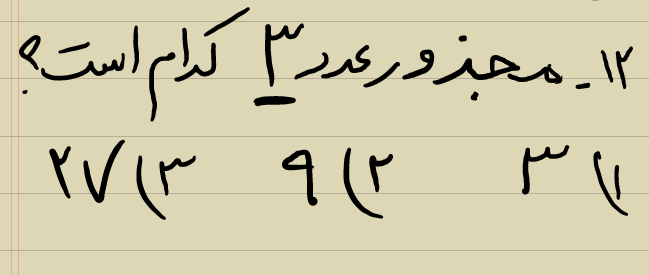 ۱۲ـ مجذور عدد ۳ کدام است؟
۱) ۳ ۲) ۹ ۳) ۲۷